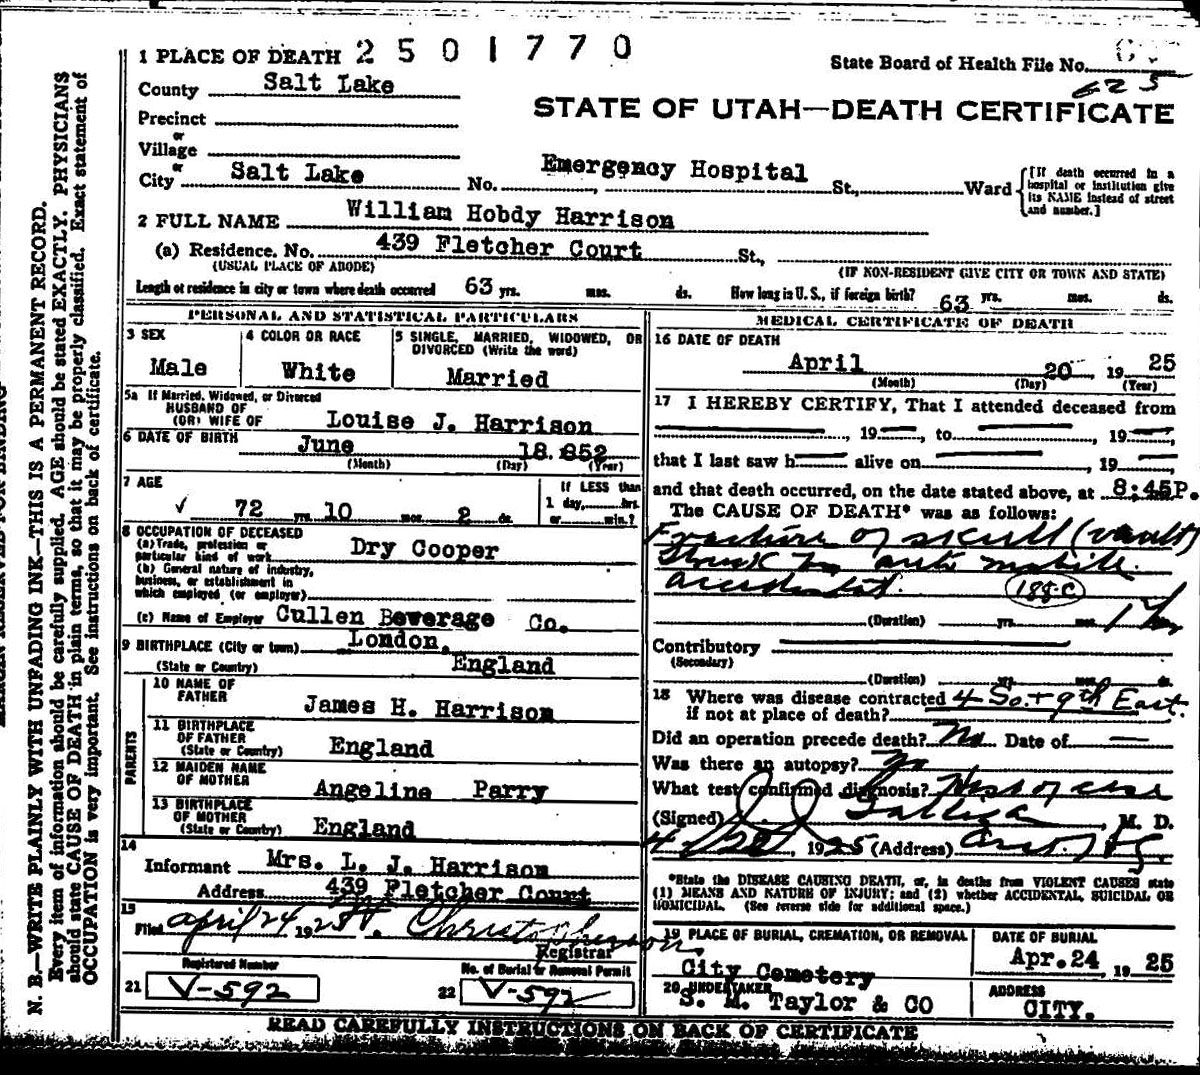 1 PLACE OF DEATH 2501770
State Board of Health File No.
625
County Salt Lake
STATE OF UTAH—DEATH CERTIFICATE
Precinct
or
Village
or
City Salt Lake No. Emergency Hospital St., Ward
[If death occurred in a
hospital or institution give
its NAME instead of street
and number.]
2 FULL NAME William Hobdy Harrison
(a) Residence. No. 439 Fletcher Court St.,
(USUAL PLACE OF ABODE) (IF NON-RESIDENT GIVE CITY OR TOWN AND STATE)
Length of residence in city or town where death occurred 63 yrs. mos. ds. How long in U.S., if foreign birth? 63 yrs. mos. ds.
PERSONAL AND STATISTICAL PARTICULARS
3 SEX
Male
4 COLOR OR RACE
White
5 SINGLE, MARRIED, WIDOWED, OR
DIVORCED (Write the word)
Married
5a If Married, Widowed, or Divorced
HUSBAND OF
(OR) WIFE OF Louise J. Harrison
6 DATE OF BIRTH June 18. 852
(Month) (Day) (Year)
7 AGE
72 yrs. 10 mos. 2 ds.
If LESS than
1 day, hrs.
or min.?
8 OCCUPATION OF DECEASED
(a) Trade, profession or
particular kind of work Dry Cooper
(b) General nature of industry,
business, or establishment in
which employed (or employer)
(c) Name of Employer Cullen Beverage Co.
9 BIRTHPLACE (City or town) London,
(State or Country) England
PARENTS
10 NAME OF
FATHER James H. Harrison
11 BIRTHPLACE
OF FATHER
(State or Country) England
12 MAIDEN NAME
OF MOTHER Angeline Parry
13 BIRTHPLACE
OF MOTHER
(State or Country) England
14
Informant Mrs. L. J. Harrison
Address 439 Fletcher Court
15
Filed April 24 192
Registrar
Registered Number
21 V-592
No. of Burial or Removal Permit
22 V-592
MEDICAL CERTIFICATE OF DEATH
16 DATE OF DEATH
April 20 19 25
(Month) (Day) (Year)
17 I HEREBY CERTIFY, That I attended deceased from
, 19 , to , 19
that I last saw h alive on , 19
and that death occurred, on the date stated above, at 8:45P.
The CAUSE OF DEATH* was as follows:
Fracture of skull (vault)
Struck by auto mobile
accidental. 188-C
(Duration) yrs. mos. 1
Contributory
(Secondary)
(Duration) yrs. mos. ds.
18 Where was disease contracted 4 So. + 9th East.
if not at place of death?
Did an operation precede death? No Date of —
Was there an autopsy? No
What test confirmed diagnosis? Hist of case
(Signed) , M. D.
, 1925 (Address)
*State the DISEASE CAUSING DEATH, or, in deaths from VIOLENT CAUSES state
(1) MEANS AND NATURE OF INJURY; and (2) whether ACCIDENTAL, SUICIDAL OR
HOMICIDAL. (See reverse side for additional space.)
19 PLACE OF BURIAL, CREMATION, OR REMOVAL
City Cemetery
DATE OF BURIAL
Apr. 24 19 25
20 UNDERTAKER
S. M. Taylor & CO
ADDRESS
CITY.
READ CAREFULLY INSTRUCTIONS ON BACK OF CERTIFICATE
N. B.—WRITE PLAINLY WITH UNFADING INK—THIS IS A PERMANENT RECORD.
Every item of information should be carefully supplied. AGE should be stated EXACTLY. PHYSICIANS
should state CAUSE OF DEATH in plain terms, so that it may be properly classified. Exact statement of
OCCUPATION is very important. See instructions on back of certificate.